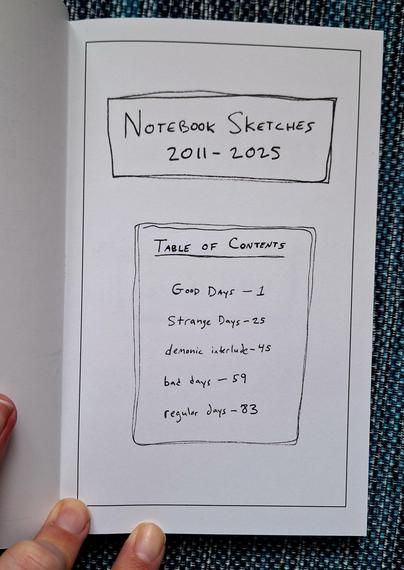 NOTEBOOK SKETCHES
2011 - 2025
TABLE OF CONTENTS
GOOD DAYS - 1
Strange Days - 25
demonic interlude - 45
bad days - 59
regular days - 83